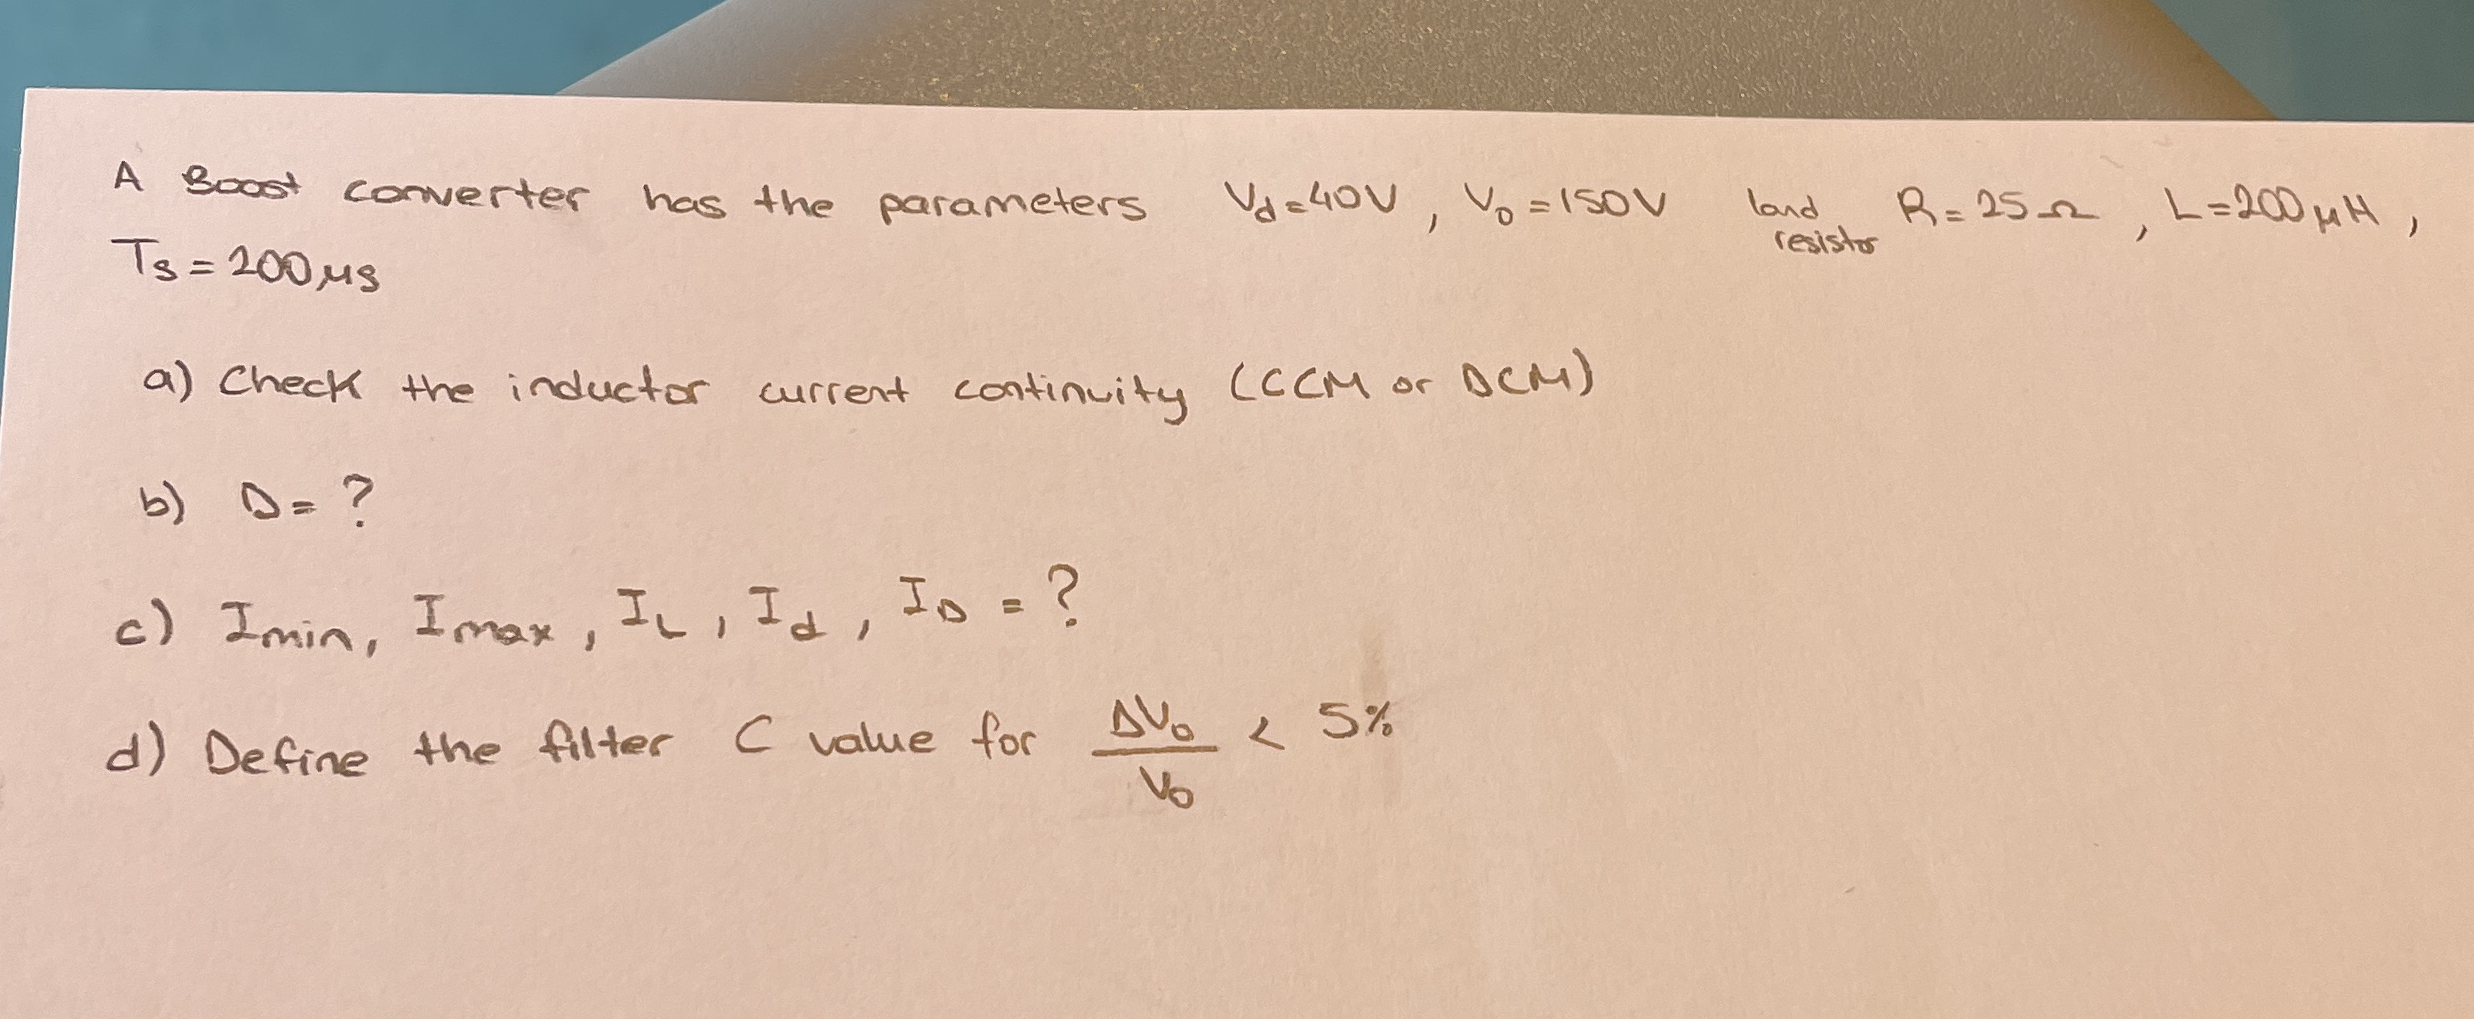 A Boost converter has the parameters Vd=40V, Vo=150V load resistor R=25Ω, L=200μH,
Ts=200μs
a) Check the inductor current continuity (CCM or DCM)
b) D=?
c) Imin, Imax, IL, Id, ID =?
d) Define the filter C value for ΔVo/Vo < 5%